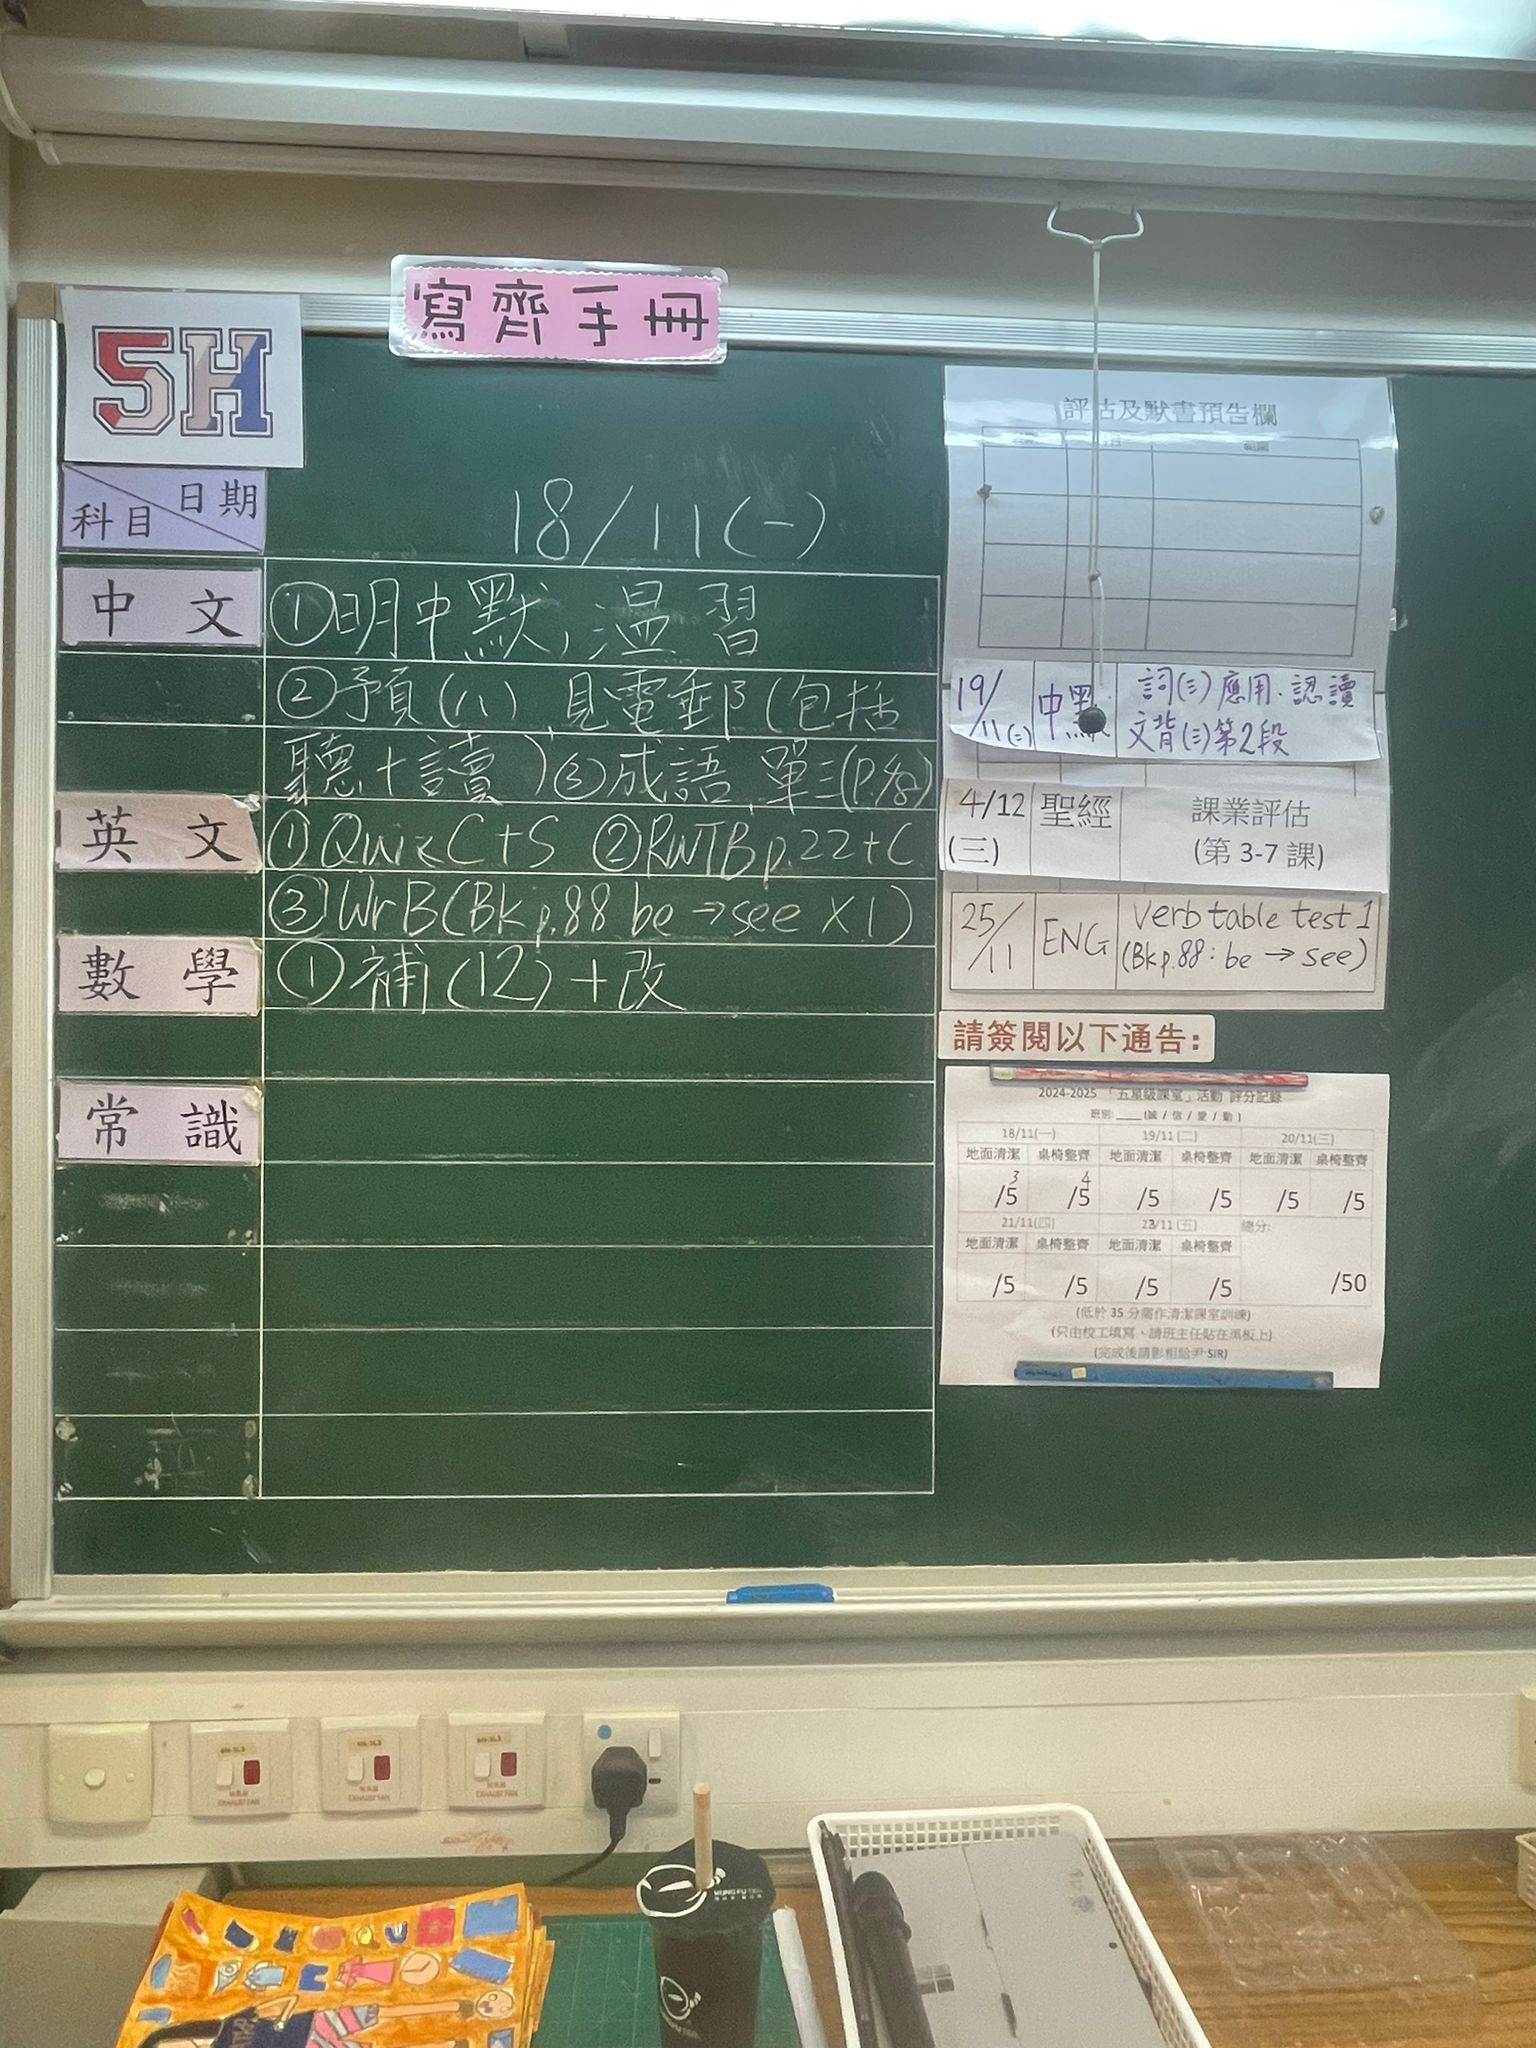 寫齊手冊
5H
日期
科目
18/11(一)
中文
①明中默,溫習
②預(八),見電郵(包括
聽+讀) ③成語,單三(P.48)
英文
① Quiz C+S ② RWTB p.22+C
③ WrB (Bk p.88 be → see X1)
數學
①補(12)+改
常識
評估及默書預告欄
19/11(二) 中默 詞(三)應用.認讀
文背(三)第2段
4/12
(三)
聖經
課業評估
(第 3-7 課)
25/11 ENG Verb table test 1
(Bk p.88: be → see)
請簽閱以下通告:
2024-2025 「五星級課室」活動 評分記錄
班別: ____ (誠 / 信 / 愛 / 勤)
18/11(一) 19/11(二) 20/11(三)
地面清潔 桌椅整齊 地面清潔 桌椅整齊 地面清潔 桌椅整齊
3/5 4/5 /5 /5 /5 /5
21/11(四) 22/11(五) 總分:
地面清潔 桌椅整齊 地面清潔 桌椅整齊
/5 /5 /5 /5 /50
(低於 35 分需作清潔課室訓練)
(只由校工填寫、請班主任貼在黑板上)
(完成後請影相給尹 SIR)
EXHAUST FAN
EXHAUST FAN
EXHAUST FAN
KUNG FU TEA